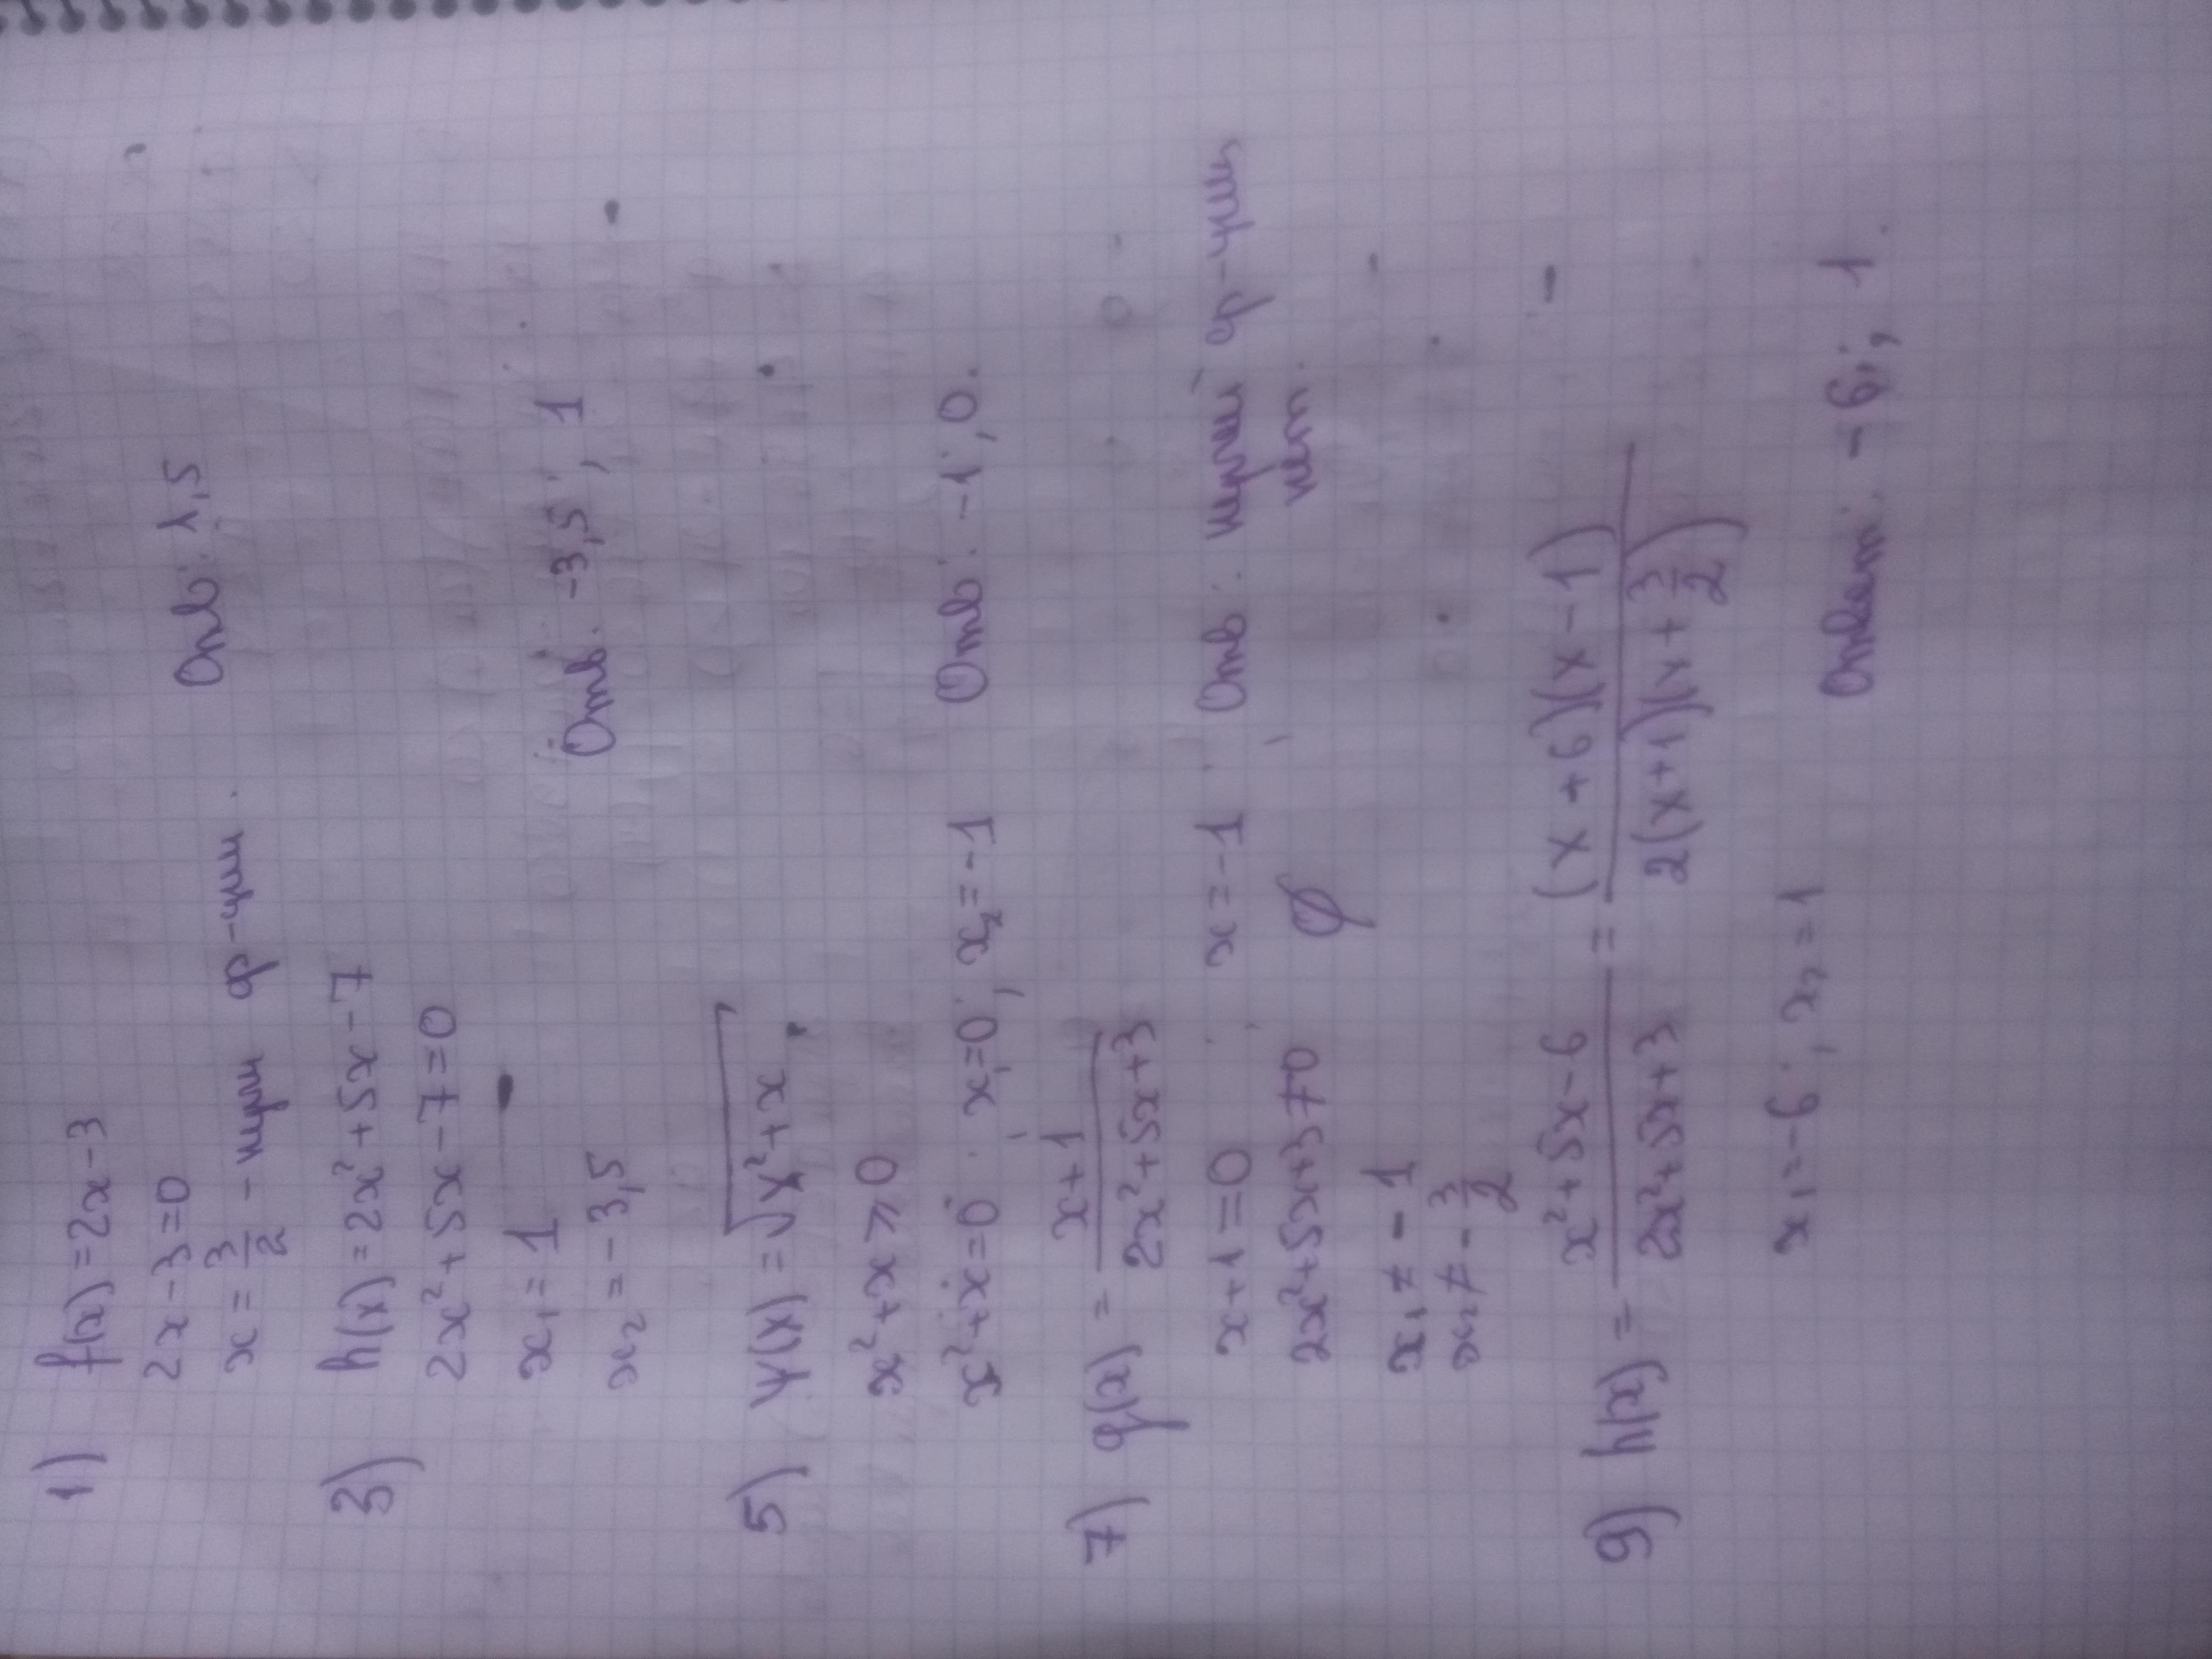 1) f(x) = 2x - 3
2x - 3 = 0
x = 3/2 - нули ф-ции. Отв: 1,5
3) h(x) = 2x² + 5x - 7
2x² + 5x - 7 = 0
x₁ = 1
x₂ = -3,5 Отв. -3,5; 1
5) y(x) = √(x² + x)
x² + x ≥ 0
x² + x = 0 x₁ = 0; x₂ = -1 Отв: -1; 0.
7) g(x) = (x + 1)/(2x² + 5x + 3)
x + 1 = 0 x = -1 Отв: нулей ф-ции
2x² + 5x + 3 ≠ 0 ∅ нет.
x₁ ≠ -1
x₂ ≠ -3/2
9) h(x) = (x² + 5x - 6)/(2x² + 5x + 3) = (x + 6)(x - 1)/(2(x + 1)(x + 3/2))
x₁ = -6; x₂ = 1 Ответ: -6; 1.